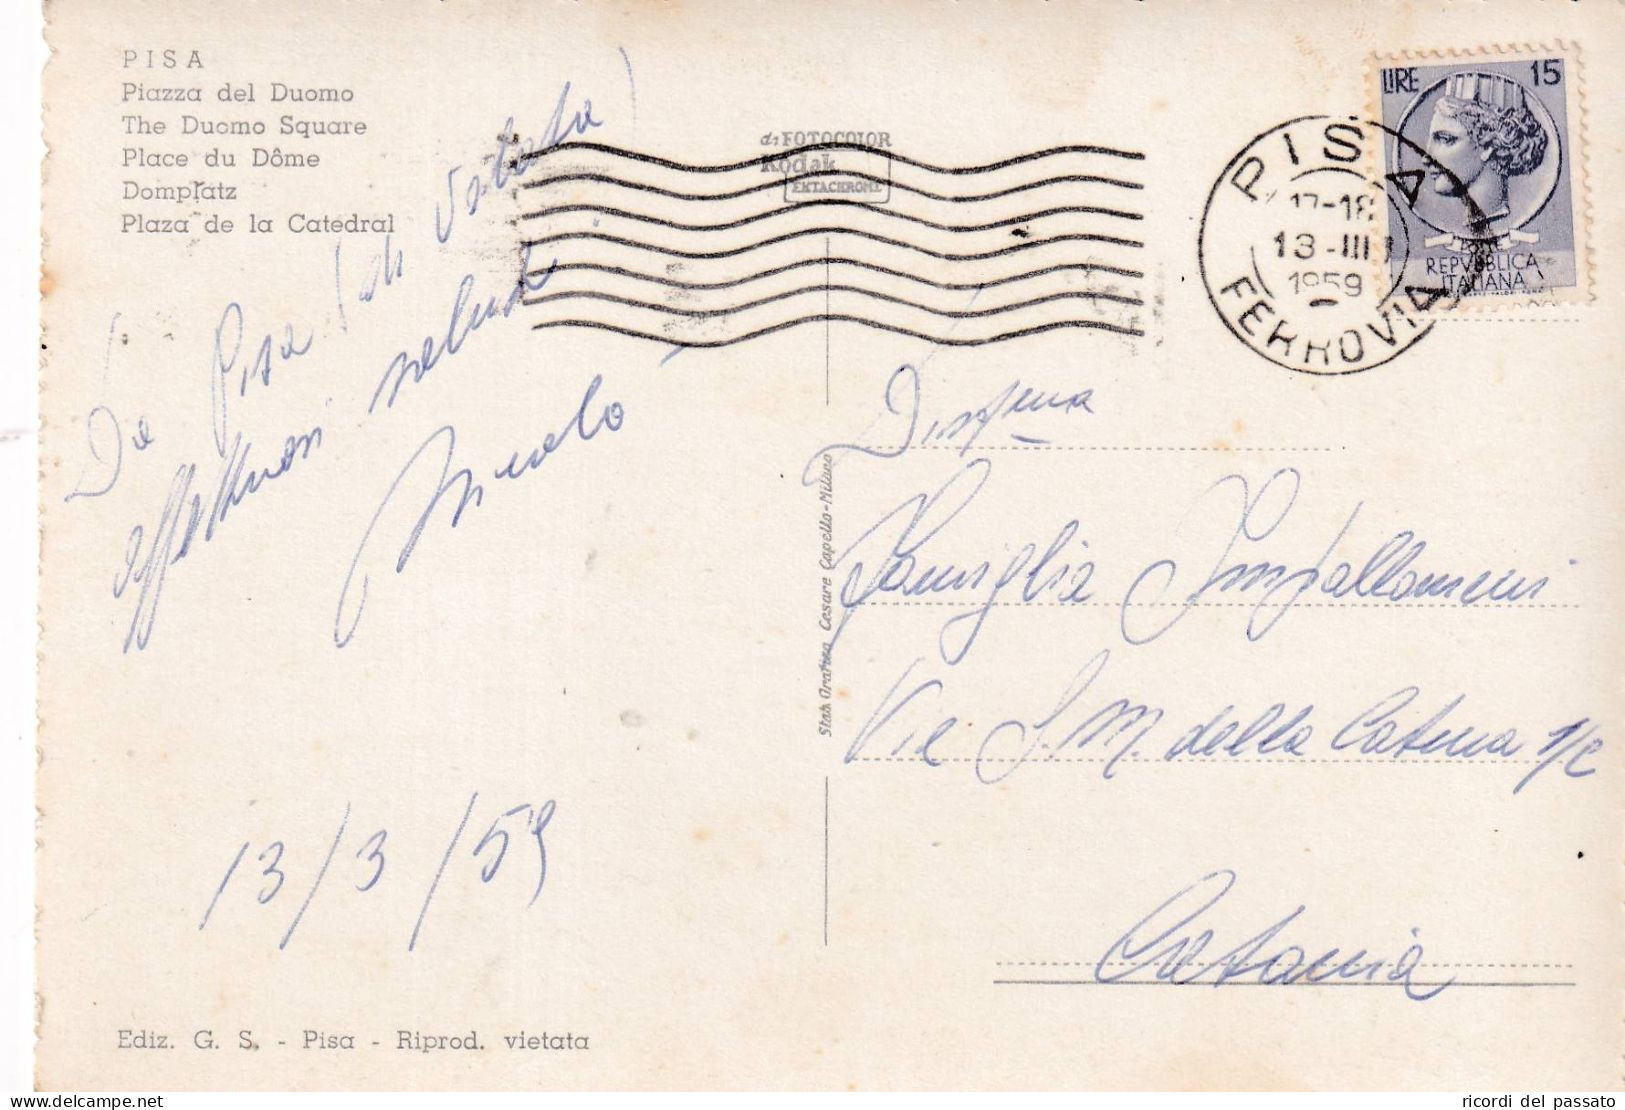 PISA
Piazza del Duomo
The Duomo Square
Place du Dôme
Domplatz
Plaza de la Catedral
da FOTOCOLOR
Kodak
EKTACHROME
LIRE 15
REPVBBLICA
ITALIANA
PISA
17-18
13-III
1959
FERROVIA
Da Pisa (di volata)
affettuosi saluti
13/3/59
Stab. Grafico Cesare Capello-Milano
Famiglia Impallomeni
Via S.M. della Catena
Catania
Ediz. G. S. - Pisa - Riprod. vietata
ricordi del passato